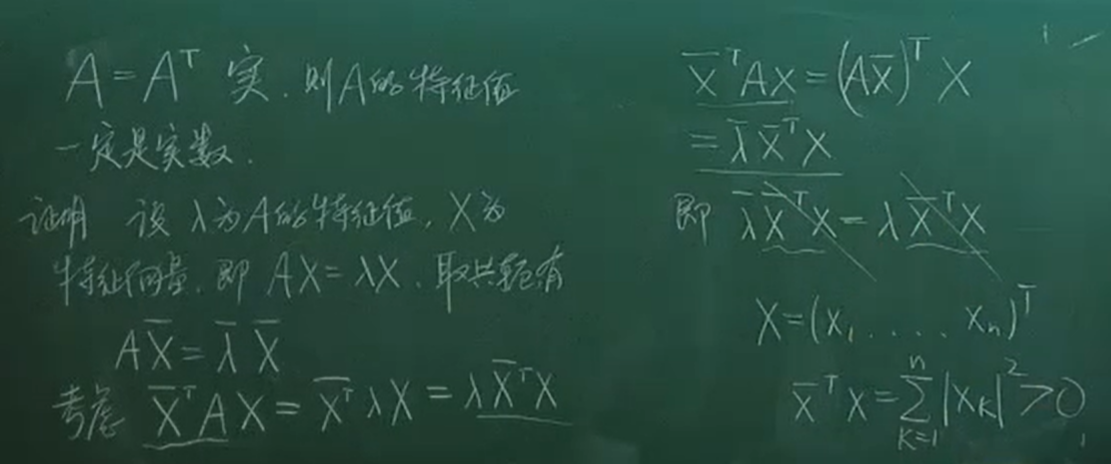 A = Aᵀ 实. 则A的特征值
一定是实数.
证明 设 λ为A的特征值, X为
特征向量. 即 AX = λX. 取共轭有
AX̅ = λ̅ X̅
考虑 X̅ᵀAX = X̅ᵀλX = λX̅ᵀX
X̅ᵀAX = (AX̅)ᵀ X
= λ̅X̅ᵀX
即 λ̅X̅ᵀX = λX̅ᵀX
X = (x₁ ..... xₙ)ᵀ
X̅ᵀX = ∑ₖ₌₁ⁿ |xₖ|² > 0